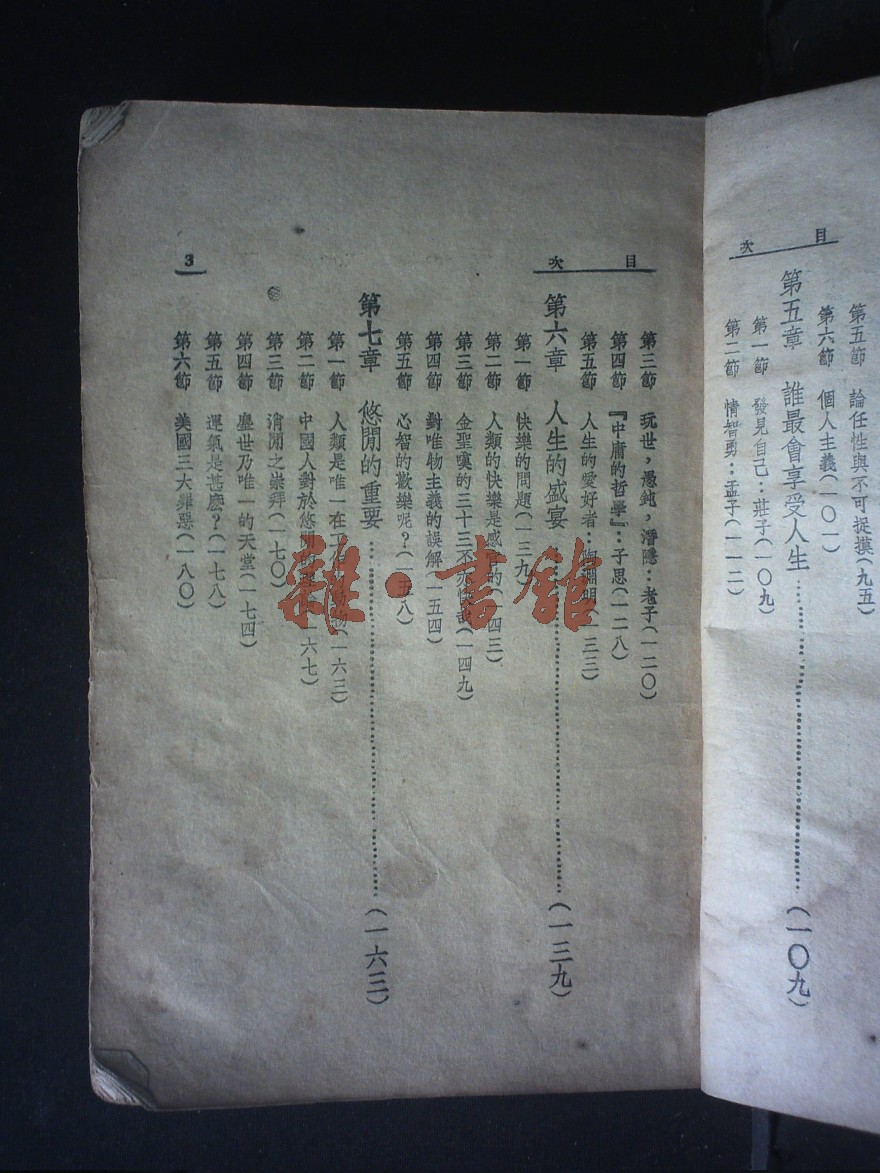 第五節 論任性與不可捉摸(九五)
第六節 個人主義(一〇一)
第五章 誰最會享受人生……(一〇九)
第一節 發見自己:莊子(一〇九)
第二節 情智勇:孟子(一一二)
目次
第三節 玩世,愚鈍,潛隱:老子(一二〇)
第四節 『中庸的哲學』:子思(一二八)
第五節 人生的愛好者:陶淵明(一三三)
目次
第六章 人生的盛宴……(一三九)
第一節 快樂的問題(一三九)
第二節 人類的快樂是感官的(一四三)
第三節 金聖嘆的三十三不亦快說(一四九)
第四節 對唯物主義的誤解(一五四)
第五節 心智的歡樂呢?(一五八)
第七章 悠閒的重要……(一六三)
第一節 人類是唯一在工作的動物(一六三)
第二節 中國人對於悠閒的(一六七)
第三節 消閒之崇拜(一七〇)
第四節 塵世乃唯一的天堂(一七四)
第五節 運氣是甚麼?(一七八)
第六節 美國三大罪惡(一八〇)
3
雜·書館